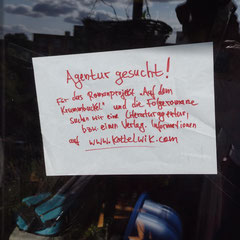 Agentur gesucht!
Für das Romanprojekt "Auf dem
Krumbuckl" und die Folgeromane
suchen wir eine Literaturagentur,
bzw. einen Verlag. Informationen
auf www.kottelwik.com